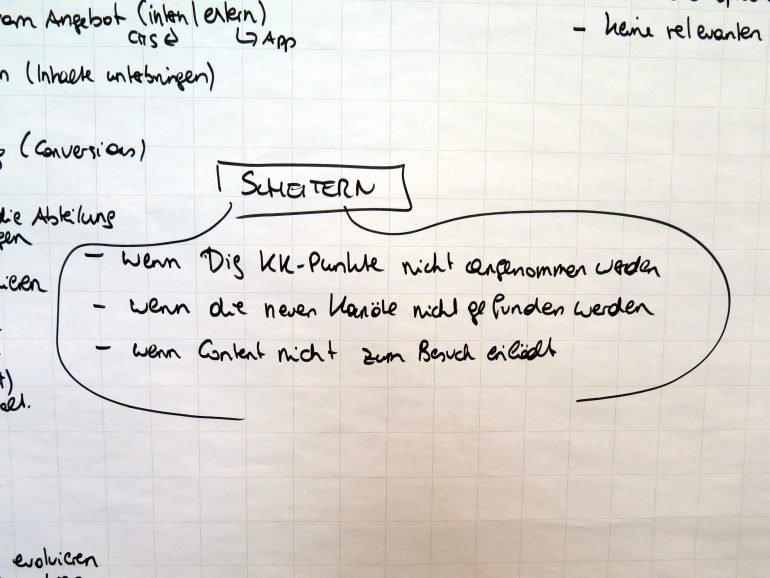 am Angebot (intern/extern)
CMS App
- keine relevanten
(Inhalte unterbringen)
(Conversions)
SCHEITERN
die Abteilung
- wenn Dig KK-Punkte nicht angenommen werden
- wenn die neuen Kanäle nicht gefunden werden
- wenn Content nicht zum Besuch einlädt
evaluieren